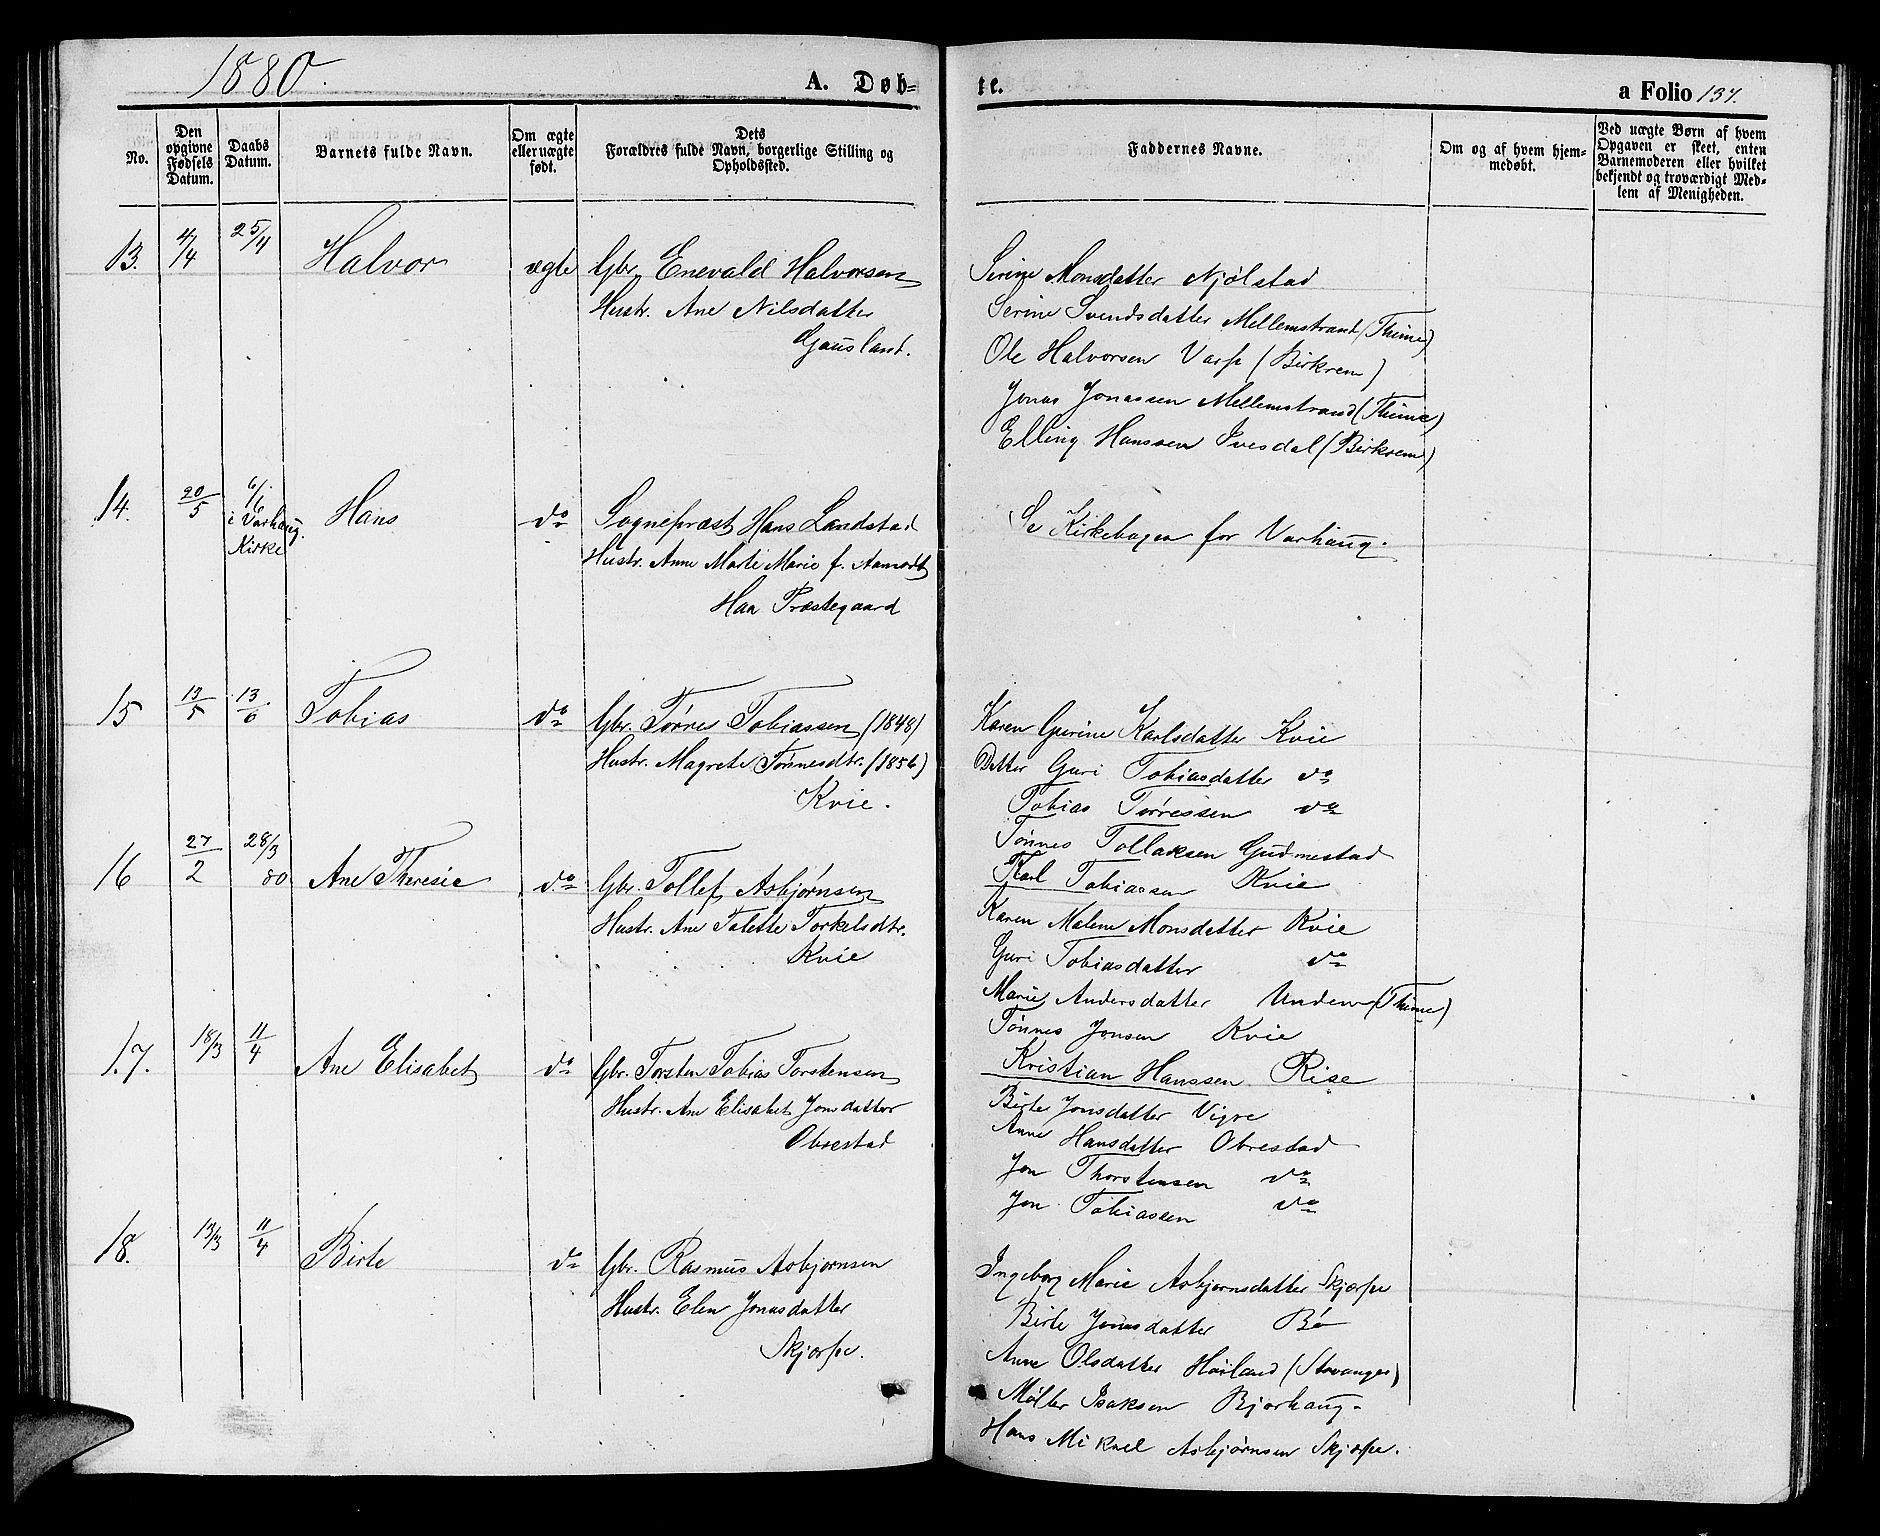 1880.
A. Døb-
te.
a Folio 137.
No.
Den opgivne Fødsels Datum.
Daabs Datum.
Barnets fulde Navn.
Om ægte eller uægte født.
Dets Forældres fulde Navn, borgerlige Stilling og Opholdssted.
Faddernes Navne.
Om og af hvem hjem-medøbt.
Ved uægte Børn af hvem Opgaven er skeet, enten Barnemoderen eller hvilket bekjendt og troværdigt Med-lem af Menigheden.
13. 4/4 25/4 Halvor ægte Gbr. Enevald Halvorsen
Hustr. Ane Nilsdatter
Gausland.
Serine Monsdatter Njølstad
Serine Svendsdatter Mellemstrand (Thime)
Ole Halvorsen Varp (Birkrem)
Jonas Jonassen Mellemstrand (Thime)
Elling Hanssen Ivesdal (Birkrem)
14. 20/5 6/6 i Varhaug Kirke Hans do Sognepræst Hans Landstad
Hustr. Anne Marte Marie f. Aamodt
Haa Præstegaard
Se Kirkebogen for Varhaug.
15 13/5 13/6 Tobias do Gbr. Tørres Tobiassen (1848)
Hustr. Magrete Tønnesdtr. (1856)
Kvie.
Karen Gurine Karlsdatter Kvie
Datter Guri Tobiasdatter do
Tobias Tørressen do
Tønnes Tollaksen Gudmestad
Karl Tobiassen Kvie
16 27/2 28/3 80 Ane Theresie do Gbr. Tollef Asbjørnsen
Hustr. Ane Talette Torkelsdtr.
Kvie
Karen Malene Monsdatter Kvie
Guri Tobiasdatter do
Marie Andersdatter Undem (Thime)
Tønnes Jonsen Kvie
Kristian Hanssen Rise
17. 18/3 11/4 Ane Elisabet do Gbr. Torsten Tobias Torstensen
Hustr. Ane Elisabet Jonsdatter
Obrestad
Birte Jonsdatter Vigre
Anne Hansdatter Obrestad
Jon Thorstensen do
Jon Tobiassen do
18. 13/3 11/4 Birte do Gbr. Rasmus Asbjørnsen
Hustr. Elen Jonasdatter
Skjærpe.
Ingeborg Marie Asbjørnsdatter Skjærpe
Birte Jonasdatter Bø
Anne Olsdatter Haaland (Stavanger)
Møller Isaksen Bjorhaug
Hans Mikael Asbjørnsen Skjærpe.